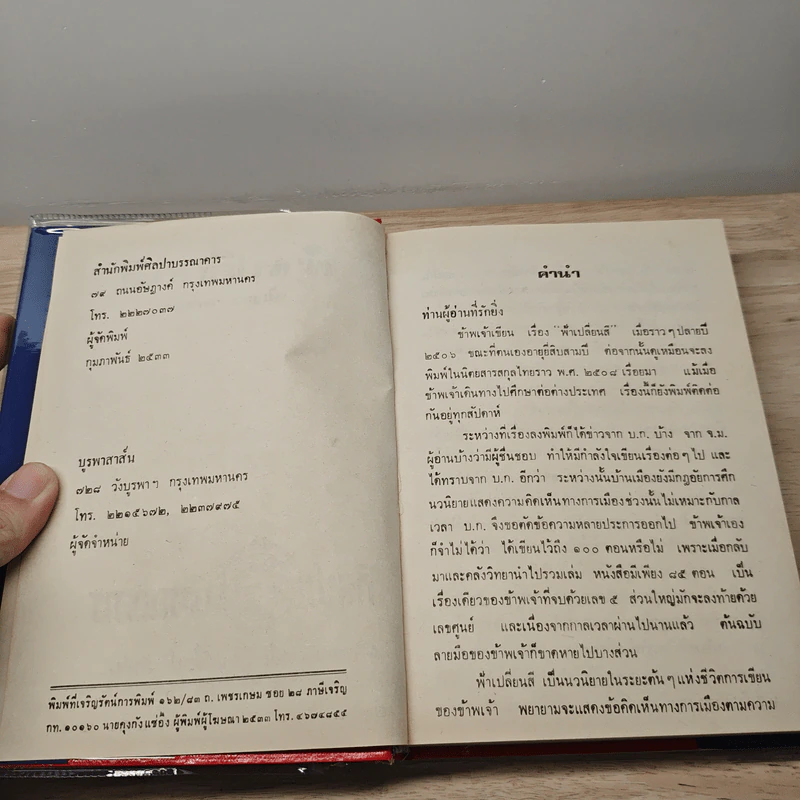 สำนักพิมพ์ศิลปาบรรณาคาร
๗๙ ถนนอัษฎางค์ กรุงเทพมหานคร
โทร. ๒๒๒๗๐๓๗
ผู้จัดพิมพ์
กุมภาพันธ์ ๒๕๓๓
บูรพาสาส์น
๗๒๘ วังบูรพาฯ กรุงเทพมหานคร
โทร. ๒๒๑๕๖๗๒, ๒๒๓๗๙๗๕
ผู้จัดจำหน่าย
พิมพ์ที่เจริญรัตน์การพิมพ์ ๑๖๒/๘๓ ถ. เพชรเกษม ซอย ๒๘ ภาษีเจริญ
กท. ๑๐๑๖๐ นายคุงกัง แซ่อึ๊ง ผู้พิมพ์ผู้โฆษณา ๒๕๓๓ โทร. ๔๖๗๔๘๕๔
คำนำ
ท่านผู้อ่านที่รักยิ่ง
ข้าพเจ้าเขียน เรื่อง "ฟ้าเปลี่ยนสี" เมื่อราวๆปลายปี
๒๕๐๖ ขณะที่ตนเองอายุยี่สิบสามปี ต่อจากนั้นดูเหมือนจะลง
พิมพ์ในนิตยสารสกุลไทยราว พ.ศ. ๒๕๐๘ เรื่อยมา แม้เมื่อ
ข้าพเจ้าเดินทางไปศึกษาต่อต่างประเทศ เรื่องนี้ก็ยังพิมพ์ติดต่อ
กันอยู่ทุกสัปดาห์
ระหว่างที่เรื่องลงพิมพ์ก็ได้ข่าวจาก บ.ก. บ้าง จาก จ.ม.
ผู้อ่านบ้างว่ามีผู้ชื่นชอบ ทำให้มีกำลังใจเขียนเรื่องต่อๆไป และ
ได้ทราบจาก บ.ก. อีกว่า ระหว่างนั้นบ้านเมืองยังมีกฎอัยการศึก
นวนิยายแสดงความคิดเห็นทางการเมืองช่วงนั้นไม่เหมาะกับกาล
เวลา บ.ก. จึงขอตัดข้อความหลายประการออกไป ข้าพเจ้าเอง
ก็จำไม่ได้ว่า ได้เขียนไว้ถึง ๑๐๐ ตอนหรือไม่ เพราะเมื่อกลับ
มาและคลังวิทยานำไปรวมเล่ม หนังสือมีเพียง ๘๕ ตอน เป็น
เรื่องเดียวของข้าพเจ้าที่จบด้วยเลข ๕ ส่วนใหญ่มักจะลงท้ายด้วย
เลขศูนย์ และเนื่องจากกาลเวลาผ่านไปนานแล้ว ต้นฉบับ
ลายมือของข้าพเจ้าก็ขาดหายไปบางส่วน
ฟ้าเปลี่ยนสี เป็นนวนิยายในระยะต้นๆแห่งชีวิตการเขียน
ของข้าพเจ้า พยายามจะแสดงข้อคิดเห็นทางการเมืองตามความ